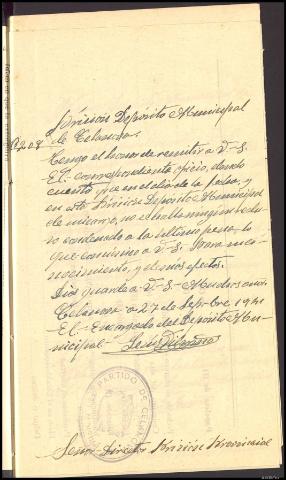 Prisión Depósito Municipal
de Celanova.
Nº 208
Tengo el honor de remitir a V.S.
El correspondiente oficio, dando
cuenta que en el día de la fecha, y
en esta Prisión Depósito Municipal
de mi cargo, no se halla ningún reclu-
so condenado a la última pena, lo
que comunico a V.S. para su co-
nocimiento, y demás efectos.
Dios guarde a V.S. Muchos años.
Celanova a 27 de Sepbre 1941
El Encargado del Depósito Mu-
nicipal
PARTIDO DE CELANOVA
Señor Director Prisión Provincial